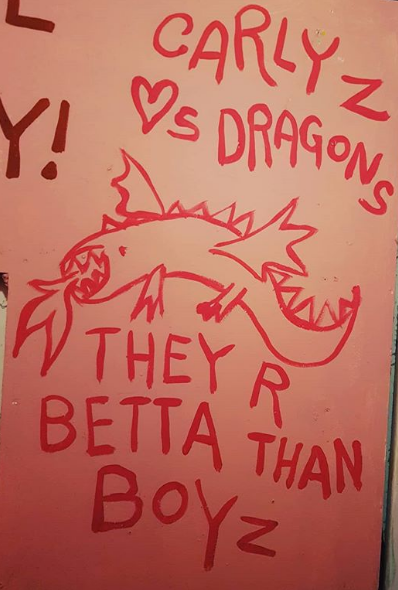 L
Y!
CARLY Z
♡s DRAGONS
THEY R
BETTA THAN
BOYz